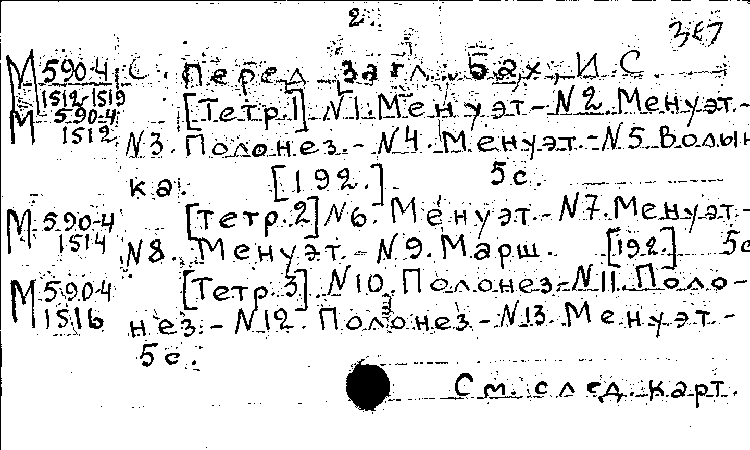 2.
367
М 590-4 / 1512-1519 С. Перед загл. Бах, И С.
М 590-4 / 1512 [Тетр.1] N1. Менуэт - N2. Менуэт -
N3. Полонез. - N4. Менуэт. - N5 Волын
ка. [192.]. 5с.
М 590-4 / 1514 [Тетр. 2] N6. Менуэт. - N7. Менуэт. -
N8. Менуэт. - N9. Марш. [192.] 5с
М 5904 / 1516 [Тетр. 3]. N10. Полонез - N11. Поло-
нез. - N12. Полонез - N13. Менуэт -
5с.
См. след. карт.